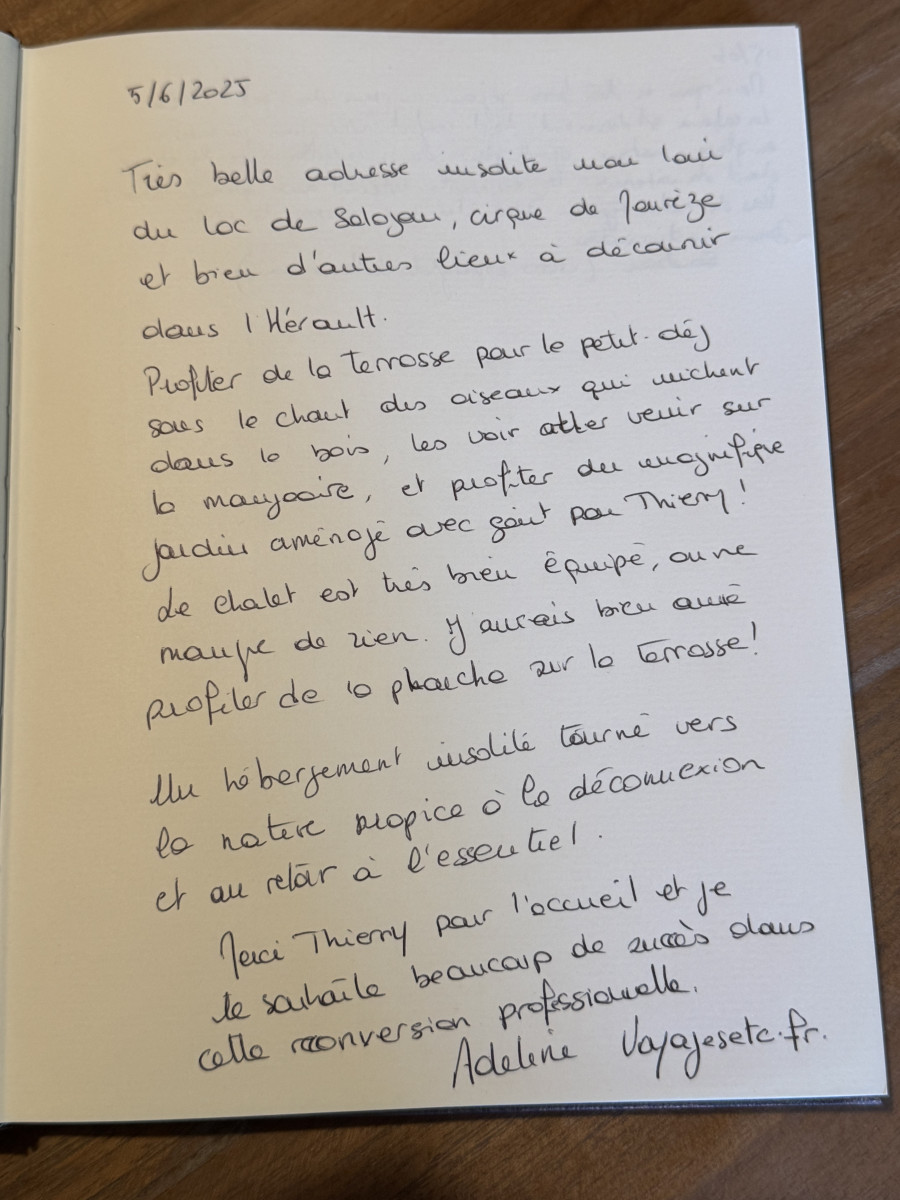 5/6/2025
Très belle adresse insolite non loin
du Lac de Salagou, cirque de Mourèze
et bien d'autres lieux à découvrir
dans l'Hérault.
Profiter de la terrasse pour le petit-déj
sous le chant des oiseaux qui nichent
dans le bois, les voir aller venir sur
la mangeoire, et profiter du magnifique
jardin aménagé avec goût par Thierry !
Le chalet est très bien équipé, on ne
manque de rien. J'aurais bien aimé
profiter de la plancha sur la terrasse !
Un hébergement insolite tourné vers
la nature propice à la déconnexion
et au retour à l'essentiel.
Merci Thierry pour l'accueil et je
te souhaite beaucoup de succès dans
cette reconversion professionnelle.
Adeline Voyagesetc.fr.